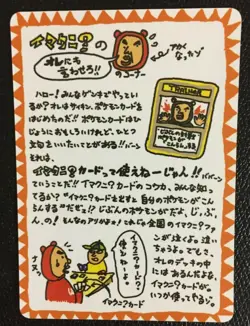 イマクニ?の
オレにも言わせろ!!
のコーナー
アカくなったゾ
TRAINER
ハロー!みんなゲンキでやってい
るか?オレはサイキン、ポケモンカードを
はじめちゃった!!ポケモンカードはひ
じょうにおもしろいけれど、ひとつ
文句をいいたいことがある!!ババーン
それは、
イマクニ?カードって使えねーじゃん!!ババーン
ということだ!!イマクニ?カードのコウカ、みんな知っ
てるか?"イマクニ?カードを出すと自分のポケモンがこん
らんする"だぜぇ!?じぶんのポケモンがだよ、じ、ぶ、
ん、の!そんなのアリかよぉ!
きっと全国のイマクニ?ファ
ンが泣くよぉ。泣い
ちゃうよぉ。でもさ、
オレのデッキの中
にはあるんだよな、
イマクニ?カードが。
いつか使ってやるっ。
イマクニ?カードって使えねーよ。
ナヌ。
イマクニ?カード